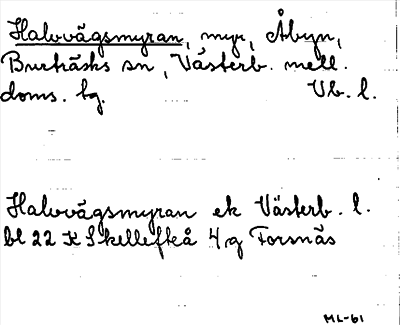 Halvvägsmyran, myr, Åbyn,
Burträsks sn, Västerb. mell.
doms. hg. Vb. l.
Halvvägsmyran ek Västerb. l.
bl 22 K Skellefteå 4g Forsnäs
ML-61